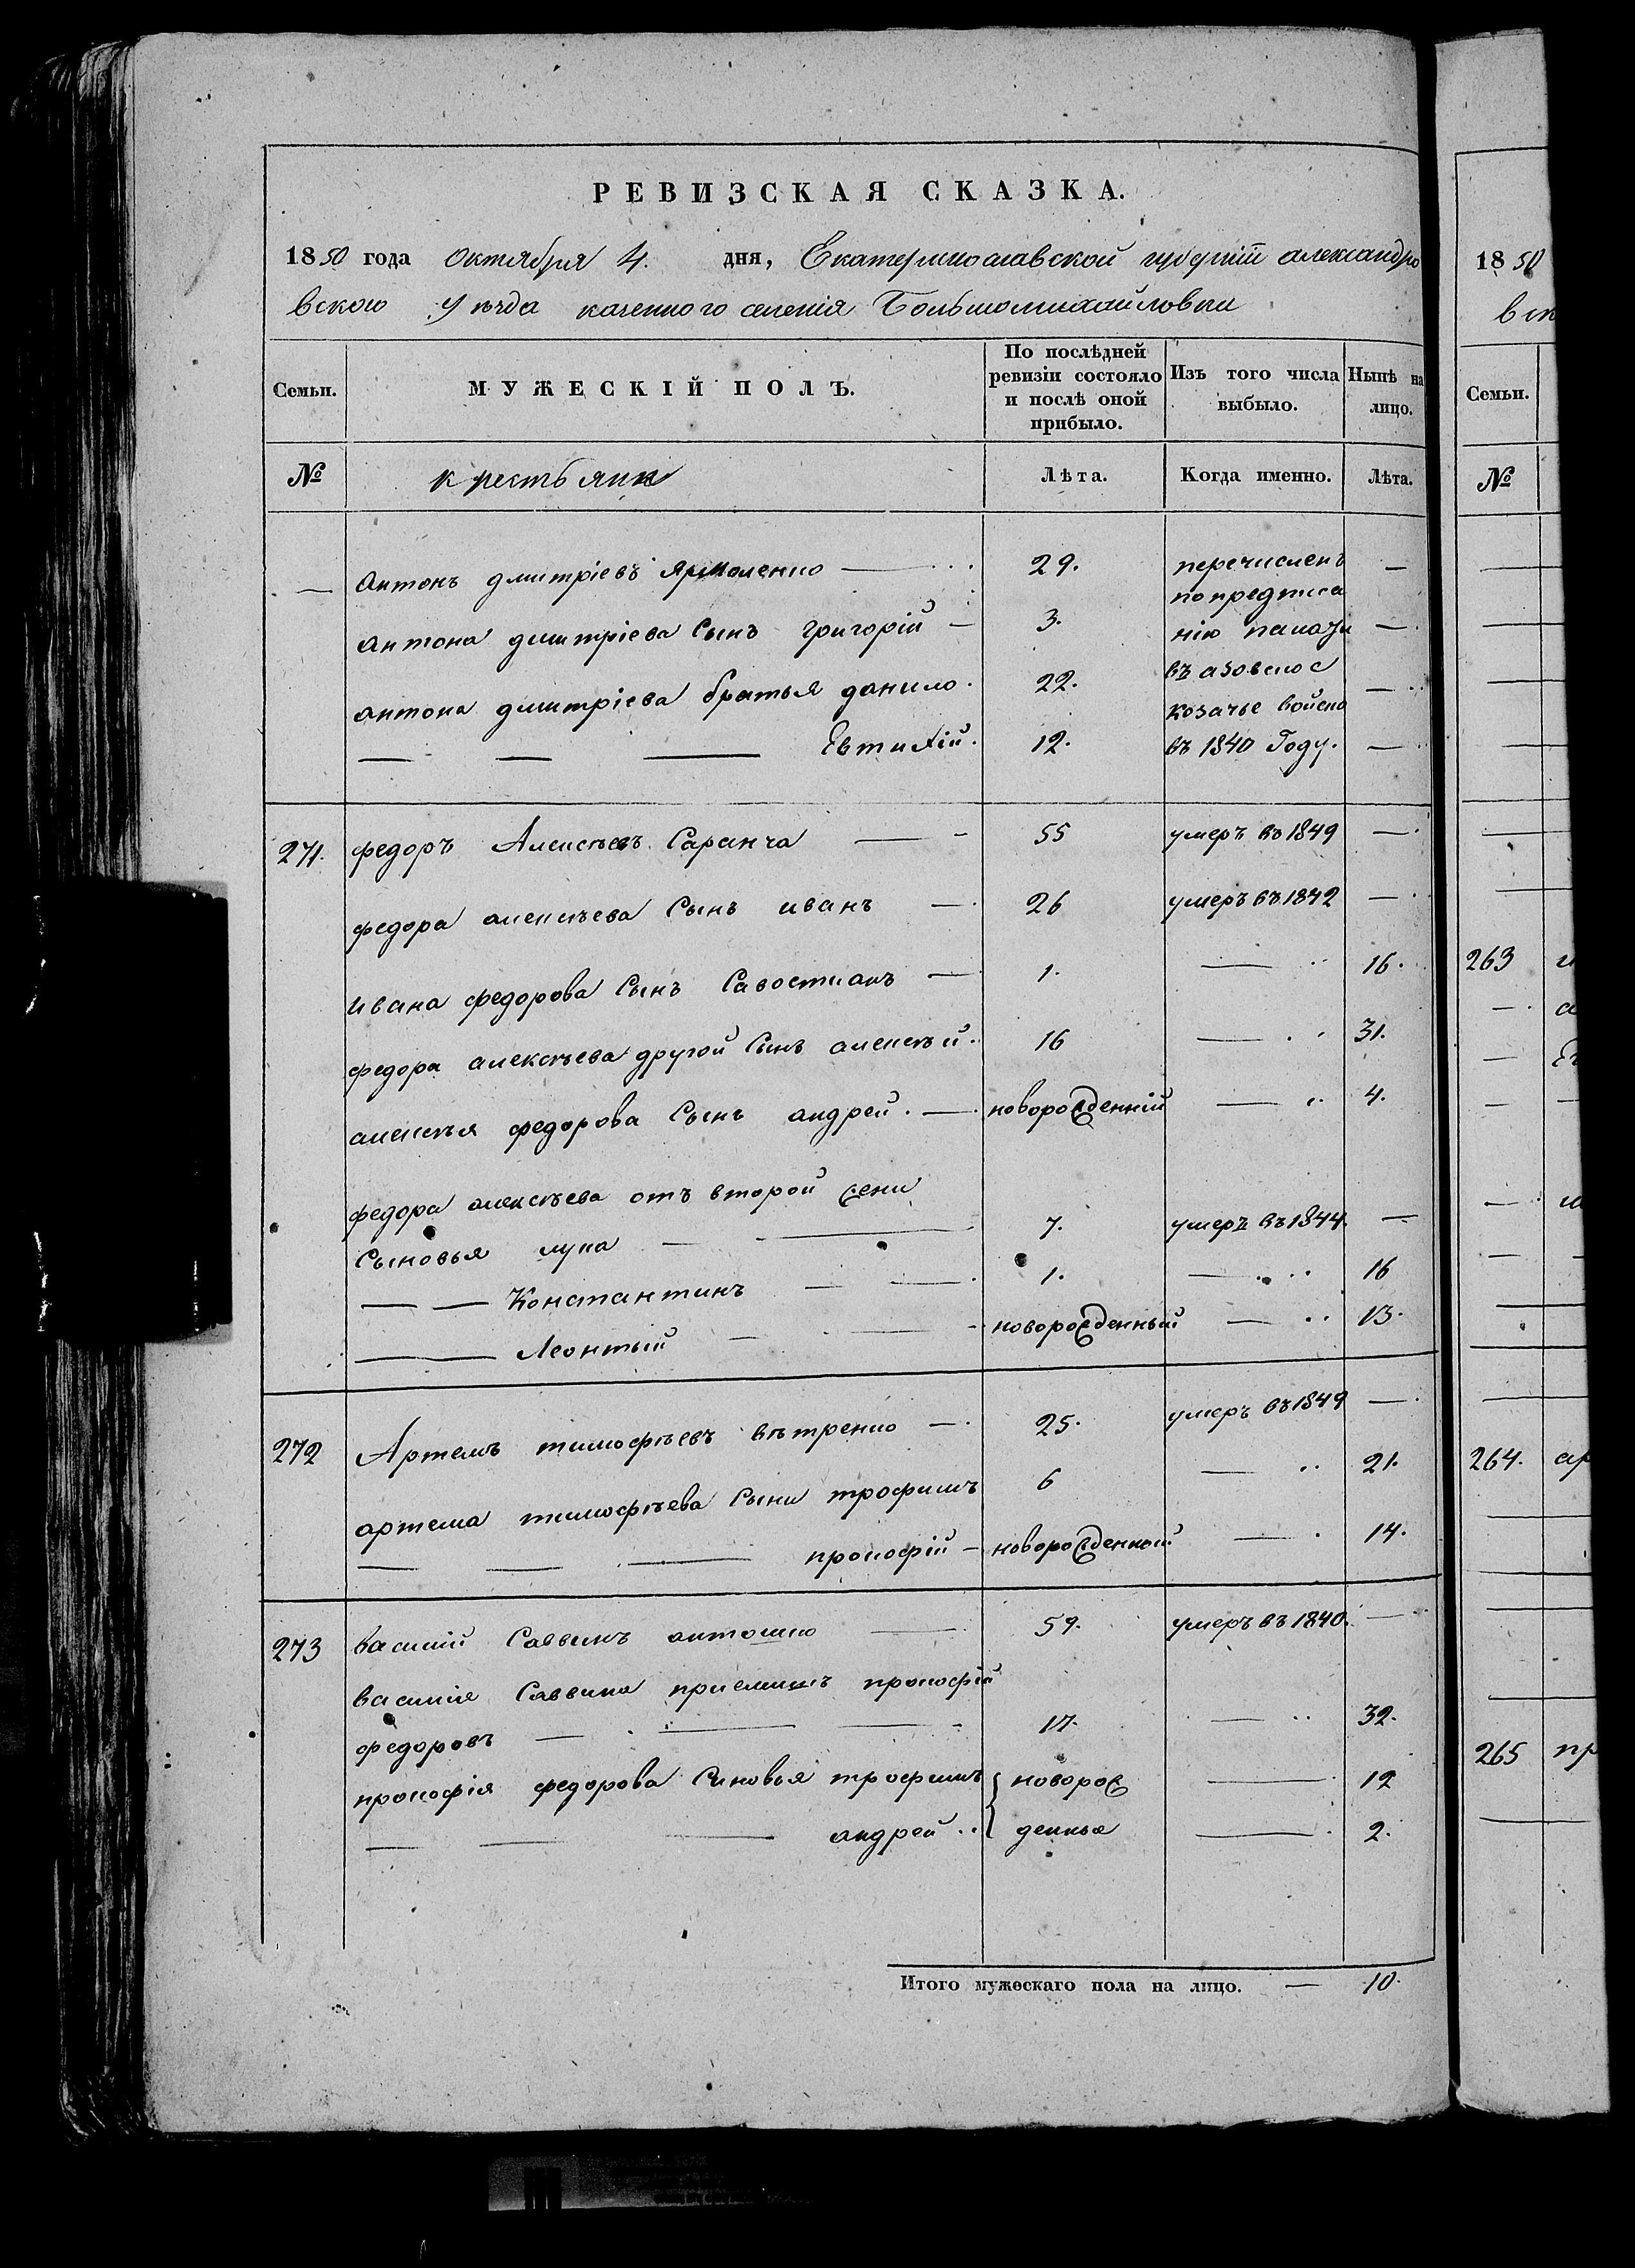 РЕВИЗСКАЯ СКАЗКА.
1850 года Октября 4. дня, Екатеринославской губерніи александро
вского Уѣзда казенного селенія Большомихайловки
Семьи. МУЖЕСКІЙ ПОЛЪ. По послѣдней ревизіи состояло и послѣ оной прибыло. Изъ того числа выбыло. Нынѣ на лицо.
№ крестьяни Лѣта. Когда именно. Лѣта.
— Антонъ дмитріевъ Ярмоленко — 29. перечисленъ —
по предписа
антона дмитріева Сынъ григорій — 3. нію палаты —
въ азовское
антона дмитріева братья данило. 22. козачье войско —
— — — Евтихій. 12. въ 1840 Году. —
271. федоръ Алексѣевъ Саранча — 55 умеръ въ 1849 —
федора алексѣева Сынъ иванъ — 26 умеръ въ 1842 —
ивана федорова Сынъ Савостианъ — 1. — 16.
федора алексѣева другой Сынъ алексѣй. 16 — 31.
алексѣя федорова Сынъ андрей. — новорожденній — 4.
федора алексѣева отъ второй жени
Сыновья лука — — 7. умеръ въ 1844. —
— — Константинъ — — 1. — 16
— Леонтый — — новорожденный — 13.
272 Артемъ тимофѣевъ вѣтренко — 25. умеръ въ 1849 —
артема тимофѣева Сыни трофимъ 6 — 21.
— — — прокофій — новорожденной — 14.
273 василій Саввинъ антошко — 59. умеръ въ 1840. —
василія Саввина приемишъ прокофій
федоровъ — — — 17. — 32.
прокофія федорова Синовья трофимъ { новорож — 12
— — — андрей .. денные — 2.
Итого мужескаго пола на лицо. — 10.
1850
вск
Семьи.
№
263
264. ар
265 пр